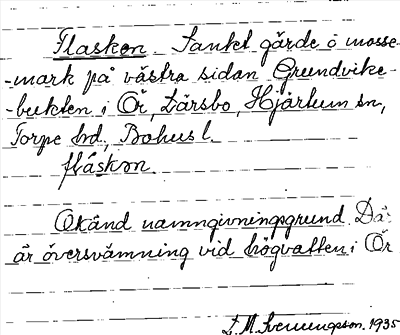 Flaskon. Sankt gärde å mosse-
-mark på västra sidan Grundvike-
-bukten i Ör, Lärsbo, Hjärtum sn,
Torpe hd, Bohus l.
flåskon.
Okänd namngivningsgrund. Då:
är översvämning vid högvatten i Ör
L. M. Svenungson. 1935